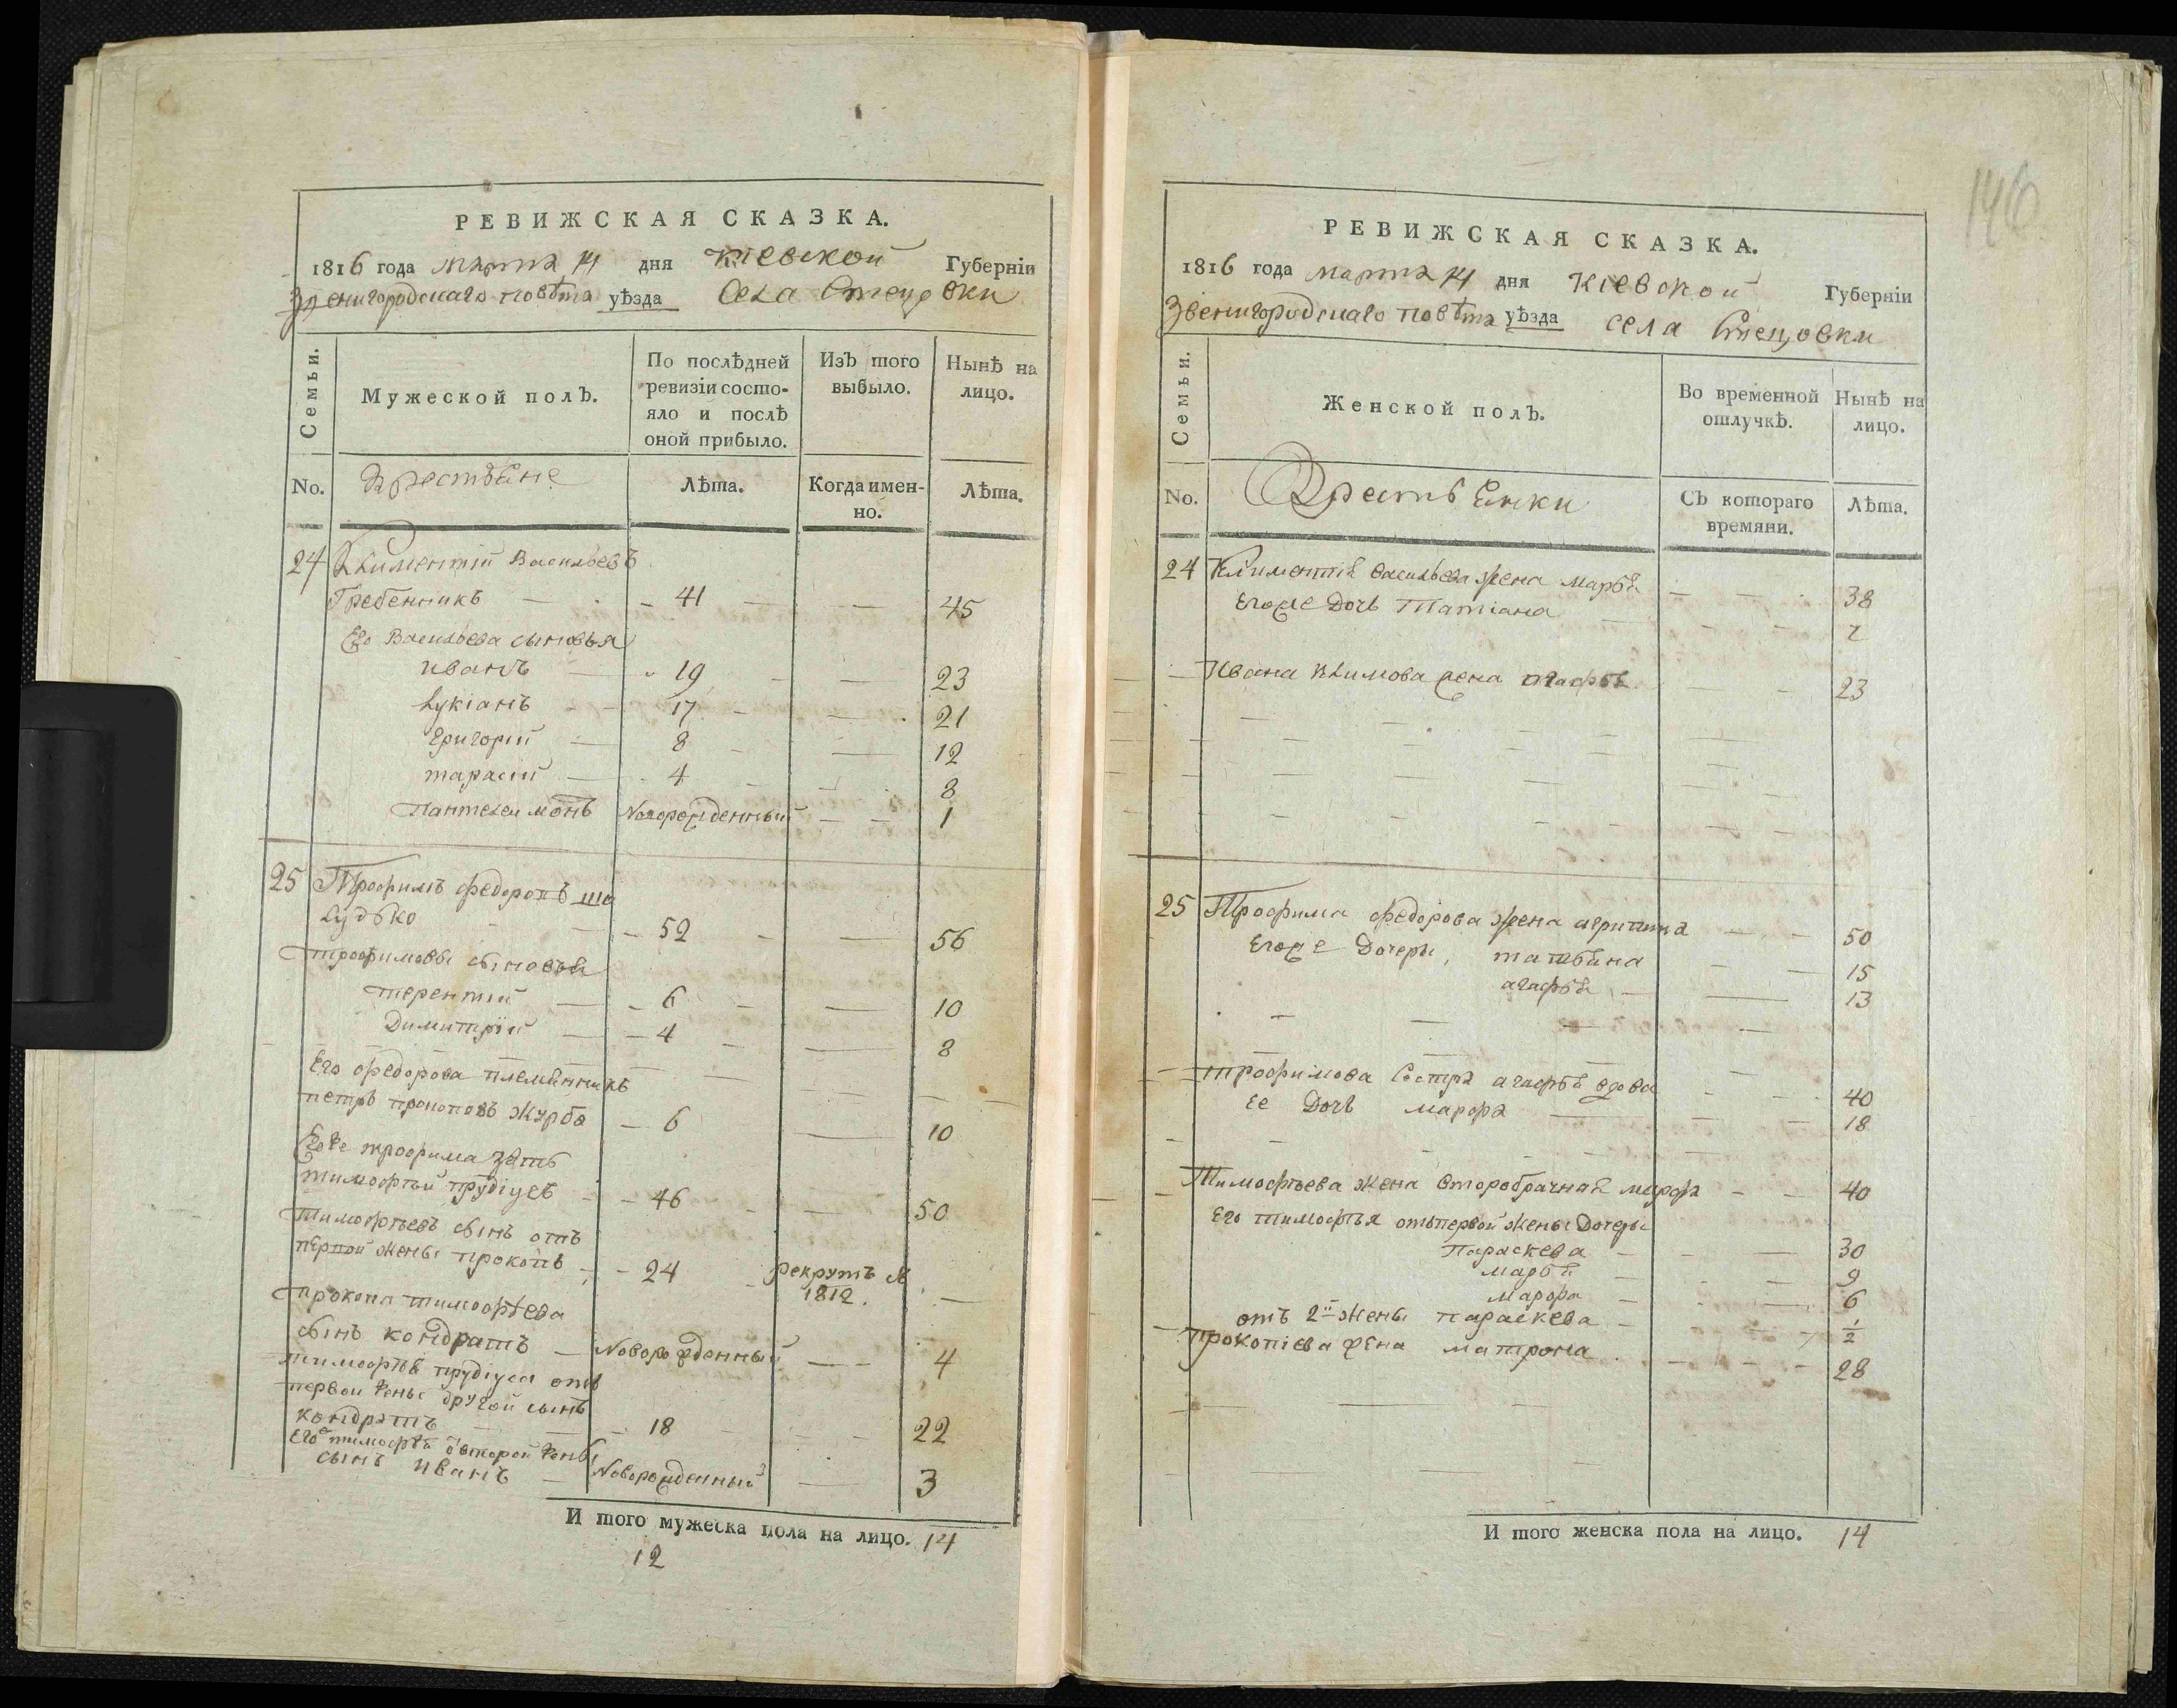 РЕВИЖСКАЯ СКАЗКА.
1816 года марта 14 дня Кіевской Губерніи
Звенигородскаго повѣта уѣзда Села Стецовки
Семьи.
Мужеской полЪ.
По послѣдней ревизіи состояло и послѣ оной прибыло.
ИзЪ того выбыло.
Нынѣ на лицо.
No. Крестьяне Лѣта. Когда именно. Лѣта.
24 Климентій Васильевъ
Гребенникъ 41 45
Его Васильева сыновья
иванъ 19 23
Лукіанъ 17 21
Григорій 8 12
тарасій 4 8
Пантелеимонъ Новорожденный 1
25 Трофимъ федоровъ ша
лудько 52 56
трофимовы сыновья
терентій 6 10
Димитрій 4 8
Его федорова племянникъ
петръ прокоповъ журба 6 10
Егоже трофима зять
тимофей прудіусъ 46 50
тимофѣевъ сынъ отъ
первой жены прокопъ 24 рекрутъ в 1812.
прокопа тимофѣева
сынъ кондратъ Новорожденный 4
тимофѣя прудіуса отъ
первой жены другой сынъ
кондратъ 18 22
Его тимофѣя второй жены
сынъ иванъ Новорожденный 3
И того мужеска пола на лицо. 14
12
146
РЕВИЖСКАЯ СКАЗКА.
1816 года марта 14 дня Кіевской Губерніи
Звенигородскаго повѣта уѣзда села Стецовки
Семьи.
Женской полЪ.
Во временной отлучкѣ.
Нынѣ на лицо.
No. Крестьянки СЪ котораго времяни. Лѣта.
24 Климентія васильева жена марья 38
Егоже дочь Татіана 7
Ивана климова жена агафья 23
25 Трофима федорова жена агрипина 50
Егоже Дочери, татьяна 15
агафья 13
трофимова Сестра агафья вдова 40
Ее Дочь марфа 18
Тимофѣева жена второбрачная марфа 40
Его тимофѣя отъ первой жены Дочеры
Параскева 30
марья 9
марфа 6
отъ 2й жены параскева ½
прокопіева жена матрона 28
И того женска пола на лицо. 14